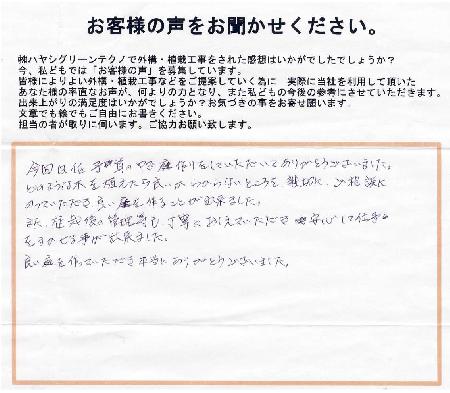 お客様の声をお聞かせください。
㈱ハヤシグリーンテクノで外構・植栽工事をされた感想はいかがでしたでしょうか？
今、私どもでは「お客様の声」を募集しています。
皆様によりよい外構・植栽工事などをご提案していく為に　実際に当社を利用して頂いた
あなた様の率直なお声が、何よりの力となり、また私どもの今後の参考にさせていただきます。
出来上がりの満足度はいかがでしょうか？お気づきの事をお寄せ願います。
文章でも絵でもご自由にお書きください。
担当の者が取りに伺います。ご協力お願い致します。
今回は低予算の中 庭作りをしていただいてありがとうございました。
どのような木を植えたら良いか わからないところを 親切に ご相談に
のっていただき 良い庭を作ることが出来ました。
又、植栽後の管理等も丁寧におしえていただき 安心して仕事
をまかせる事が出来ました。
良い庭を作っていただき本当に ありがとうございました。